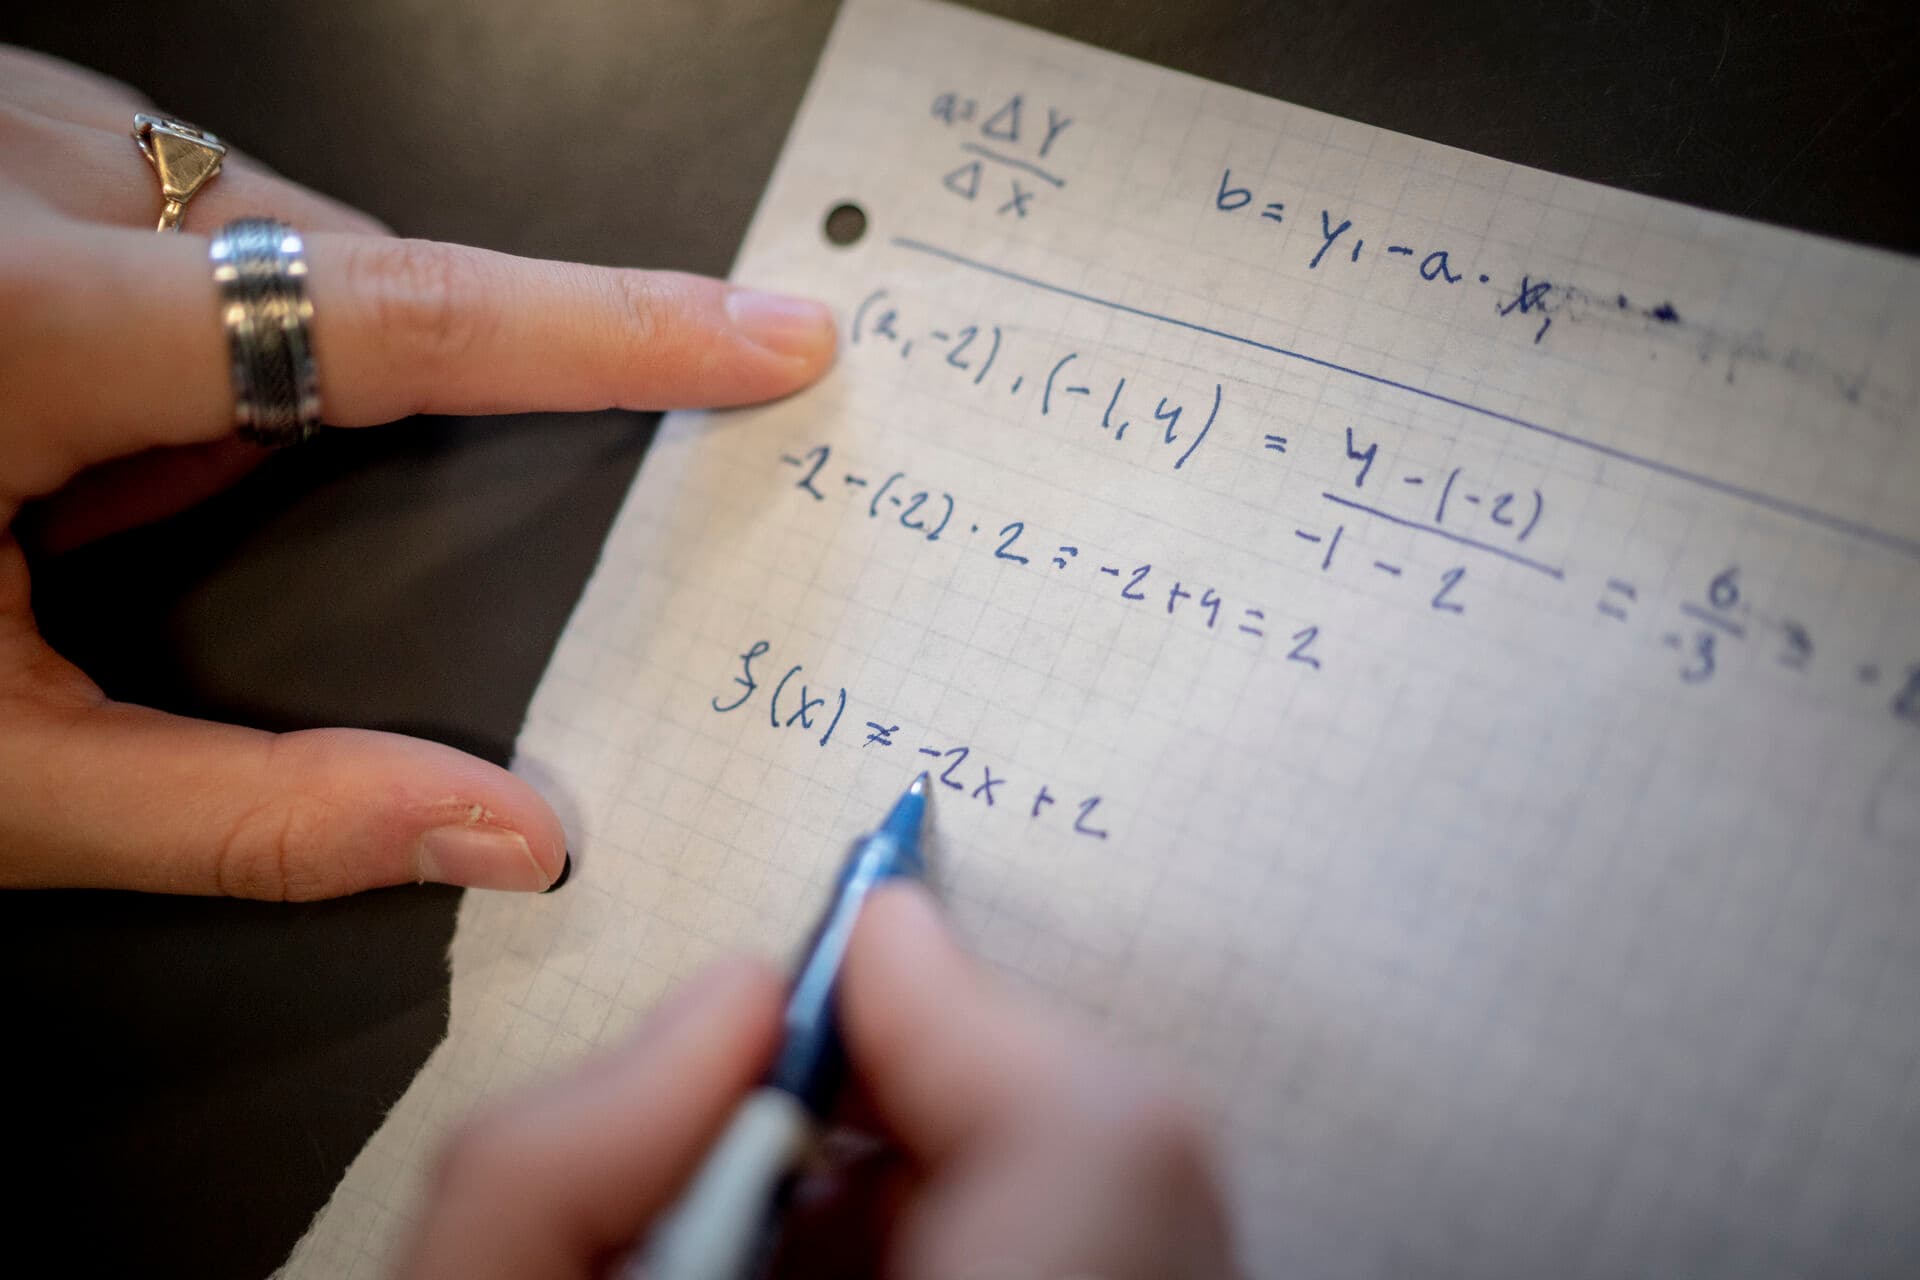 a = ΔY/ΔX
b = y₁ - a · x₁
(2, -2), (-1, 4) = 4 - (-2)/-1 - 2 = 6/-3 = -2
-2 - (-2) · 2 = -2 + 4 = 2
f(x) = -2x + 2